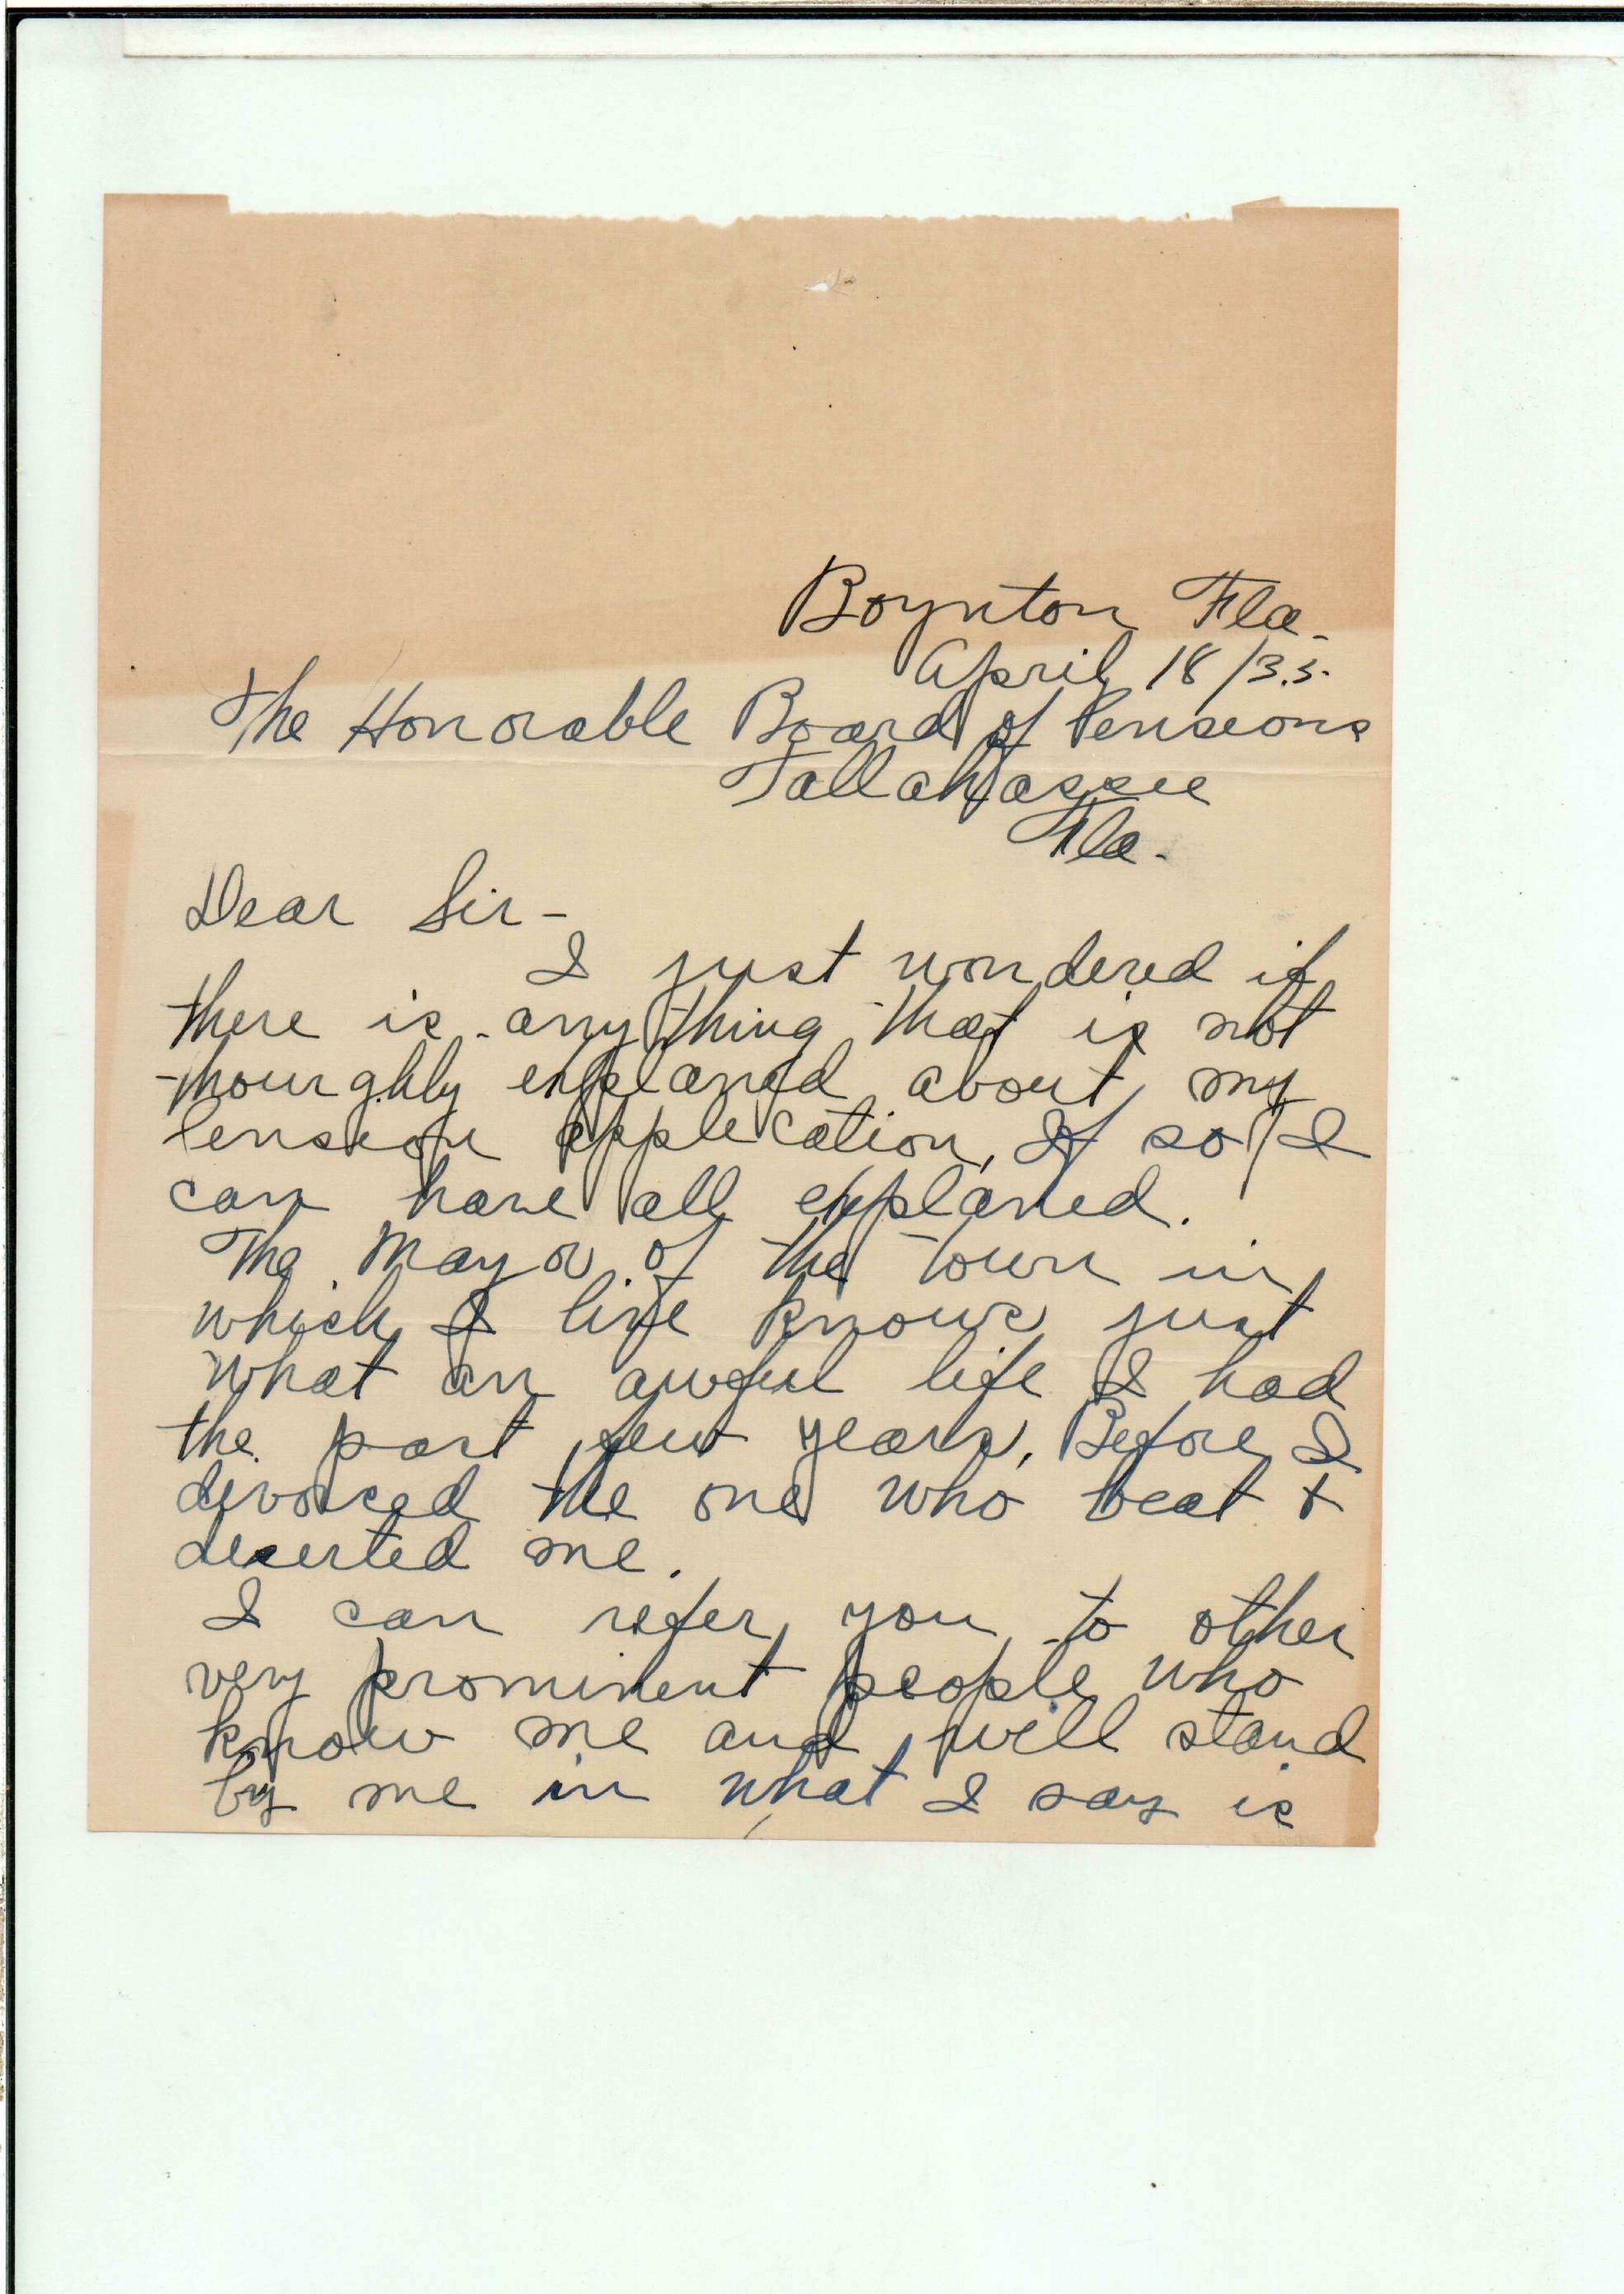 Boynton Fla.
April 18/35.
The Honorable Board of Pensions
Tallahassee
Fla.
Dear Sir-
I just wondered if
there is anything that is not
thourghly explaned about my
Pension application, If so, I
can have all explaned.
The Mayor of the town in
which I live knows just
what an awful life I had
the past few years, Before I
divorced the one who beat +
deserted me.
I can refer you to other
very prominent people who
know me and will stand
by me in what I say is